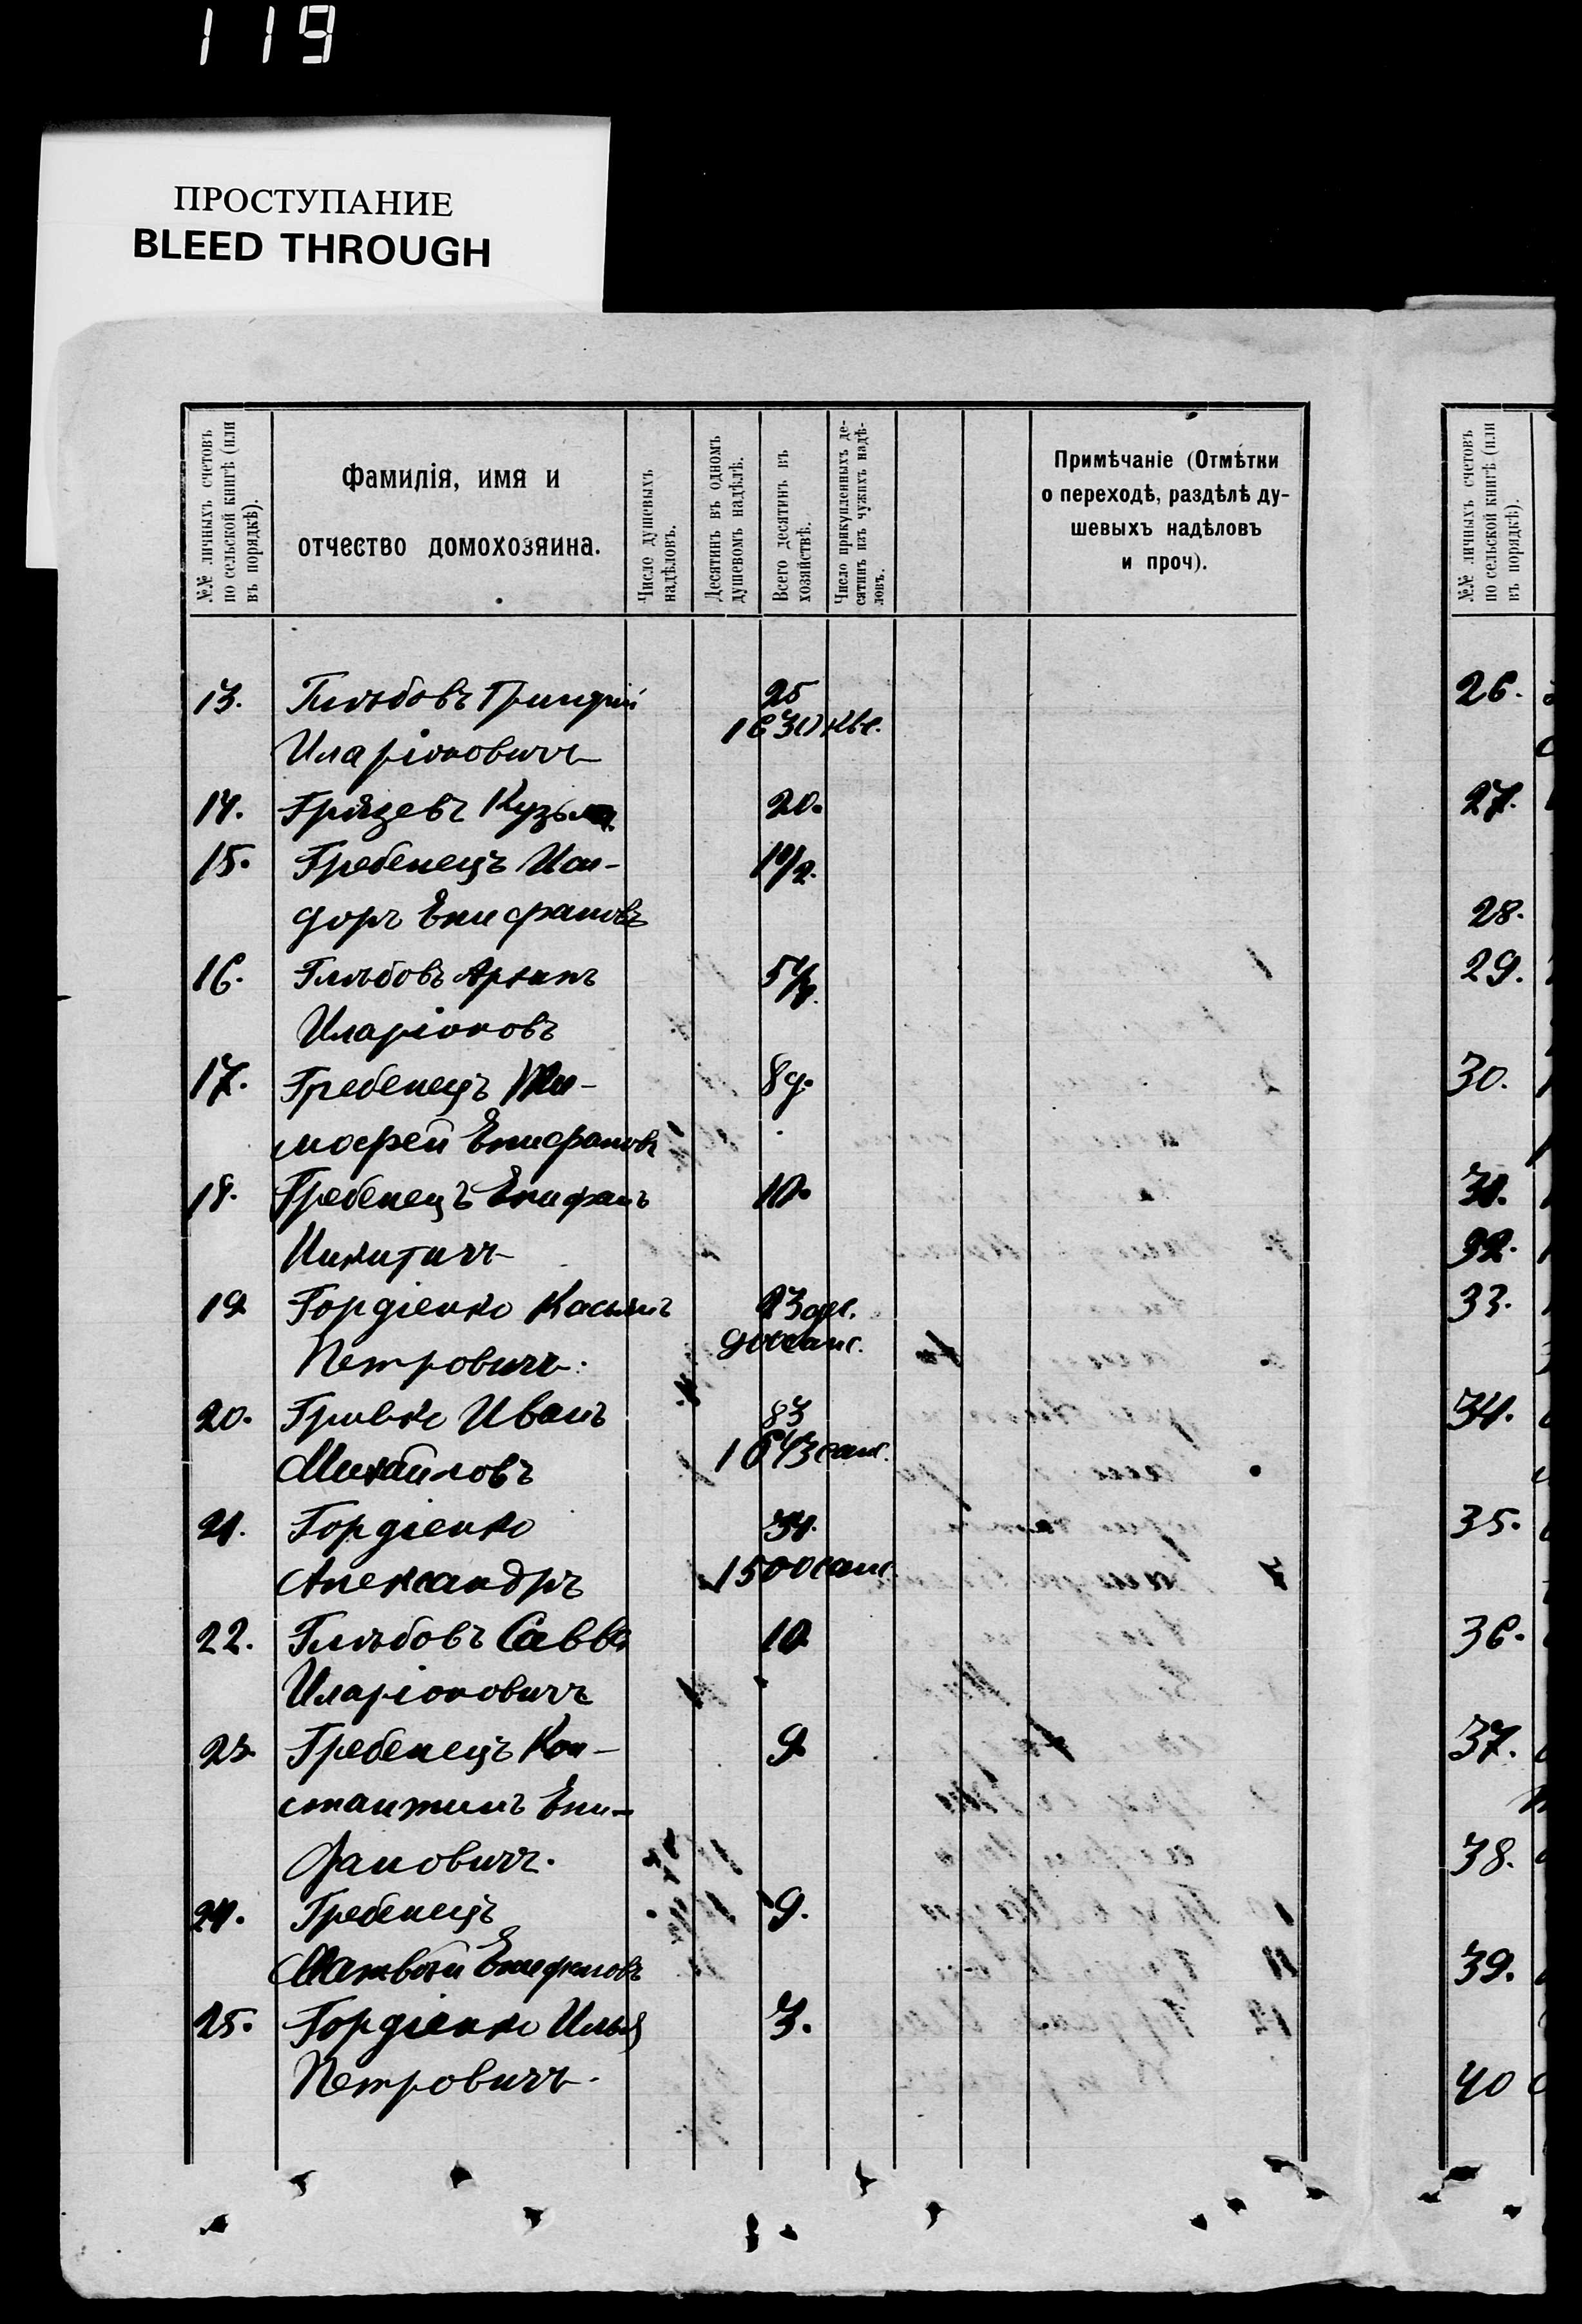 119
ПРОСТУПАНИЕ
BLEED THROUGH
№№ личныхъ счетовъ
по сельской книгѣ (или
въ порядкѣ).
Фамилія, имя и
отчество домохозяина.
Число душевыхъ
надѣловъ.
Десятинъ въ одномъ
душевомъ надѣлѣ.
Всего десятинъ въ
хозяйствѣ.
Число прикупленныхъ де-
сятинъ изъ чужихъ надѣ-
ловъ.
Примѣчаніе (Отмѣтки
о переходѣ, раздѣлѣ ду-
шевыхъ надѣловъ
и проч).
№№ личныхъ счетовъ
по сельской книгѣ (или
въ порядкѣ).
13. Глѣбовъ Григорій 25 26.
Иларіоновичъ 1630 кв.
14. Грязевъ Кузьма 20. 27.
15. Гребенецъ Иси-
доръ Епифановъ 28.
16. Глѣбовъ Архипъ 29.
Иларіоновъ
17. Гребенецъ Ти- 8 д. 30.
мофей Епифановъ
18. Гребенецъ Епифанъ 10. 31.
Никитичъ 32.
19 Гордіенко Касьянъ 23 дес. 33.
Петровичъ. саж.
20. Гривко Иванъ 83 34.
Михайловъ 1643 саж.
21. Гордіенко 34. 35.
Александръ 1500 саж.
22. Глѣбовъ Савва 10 36.
Иларіоновичъ
23. Гребенецъ Кон- 9. 37.
стантинъ Епи-
фановичъ. 38.
24. Гребенецъ 9.
Матвѣй Епифановъ 39.
25. Гордіенко Илья 3.
Петровичъ. 40